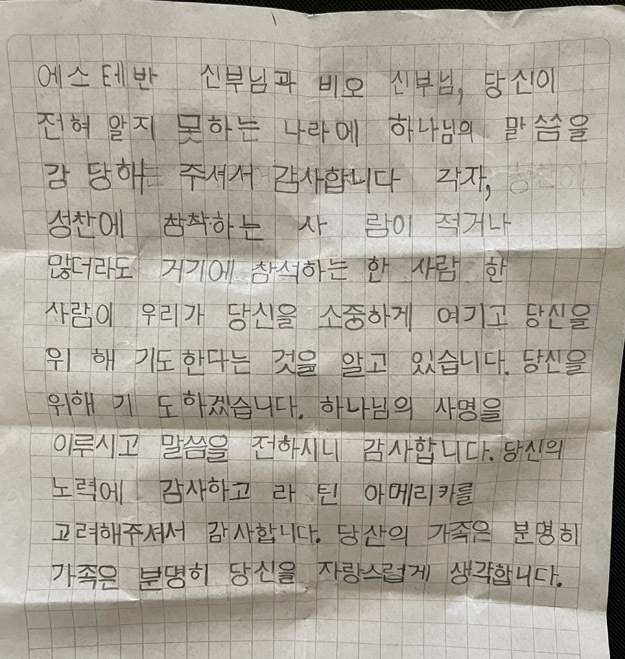 에스테반 신부님과 비오 신부님, 당신이
전혀 알지 못하는 나라에 하나님의 말씀을
감당해 주셔서 감사합니다 각자,
성찬에 참착하는 사 람이 적거나
많더라도 거기에 참석하는 한 사람 한
사람이 우리가 당신을 소중하게 여기고 당신을
위 해 기도한다는 것을 알고 있습니다. 당신을
위해 기 도하겠습니다. 하나님의 사명을
이루시고 말씀을 전하시니 감사합니다. 당신의
노력에 감사하고 라 틴 아메리카를
고려해주셔서 감사합니다. 당산의 가족은 분명히
가족은 분명히 당신을 자랑스럽게 생각합니다.